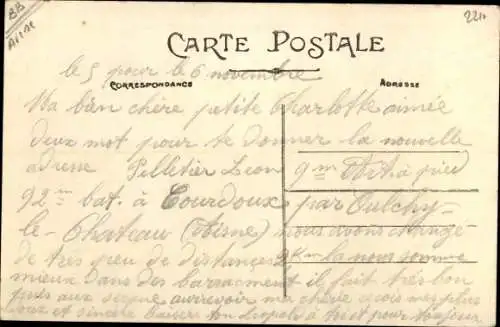 BB
Aisne
221
CARTE POSTALE
CORRESPONDANCE
ADRESSE
le 5 pour le 6 novembre
Ma bien chère petite Charlotte aimée
deux mot pour te donner la nouvelle
adresse Pelletier Leon 9m
92m bat. à Courdoux par Oulchy-
le-Chateau (Aisne) nous avons changé
de très peu de distances la nous somme
mieux dans des barracment il fait très bon
aurevoir ma chérie
et sincère baisers ton et pour toujour